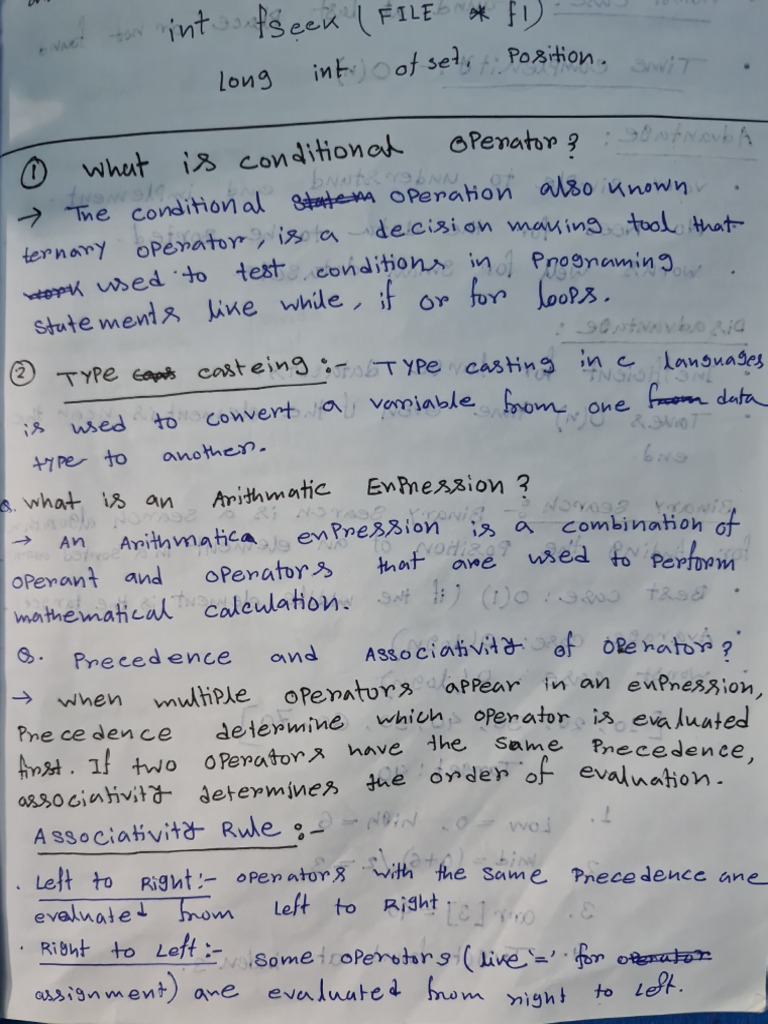 int fseek (FILE * f1)
long int of set, Position.
① What is conditional Operator?
→ The conditional statem operation also known
ternary operator, is a decision making tool that
work used to test conditions in Programing
statements like while, if or for loops.
② TYPE cans casteing :- TYPE casting in c languages
is used to convert a variable from one from data
type to another.
Q. What is an Arithmatic Expression?
→ An Arithmatica expression is a combination of
operant and operators that are used to perform
mathematical calculation.
Q. Precedence and Associativity of operator?
→ when multiple operators appear in an expression,
Precedence determine which operator is evaluated
first. If two operators have the same Precedence,
associativity determines the order of evaluation.
Associativity Rule :-
. Left to Right:- operators with the same Precedence are
evaluated from Left to Right.
. Right to Left:- some operotors (like '=' for operator
assignment) are evaluated from right to left.